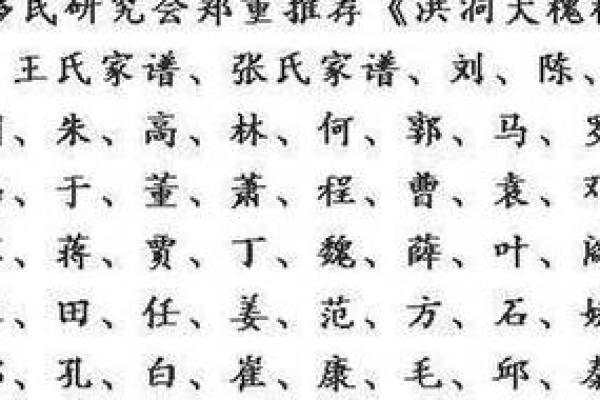 民研究会郑重推荐《洪洞大槐
王氏家谱、张氏家谱、刘、陈、
、朱、高、林、何、郭、马、
、于、董、萧、程、曹、袁、邓
、蒋、贾、丁、魏、薛、叶、阎
、田、任、姜、范、方、石、姚
、孔、白、崔、康、毛、邱、秦